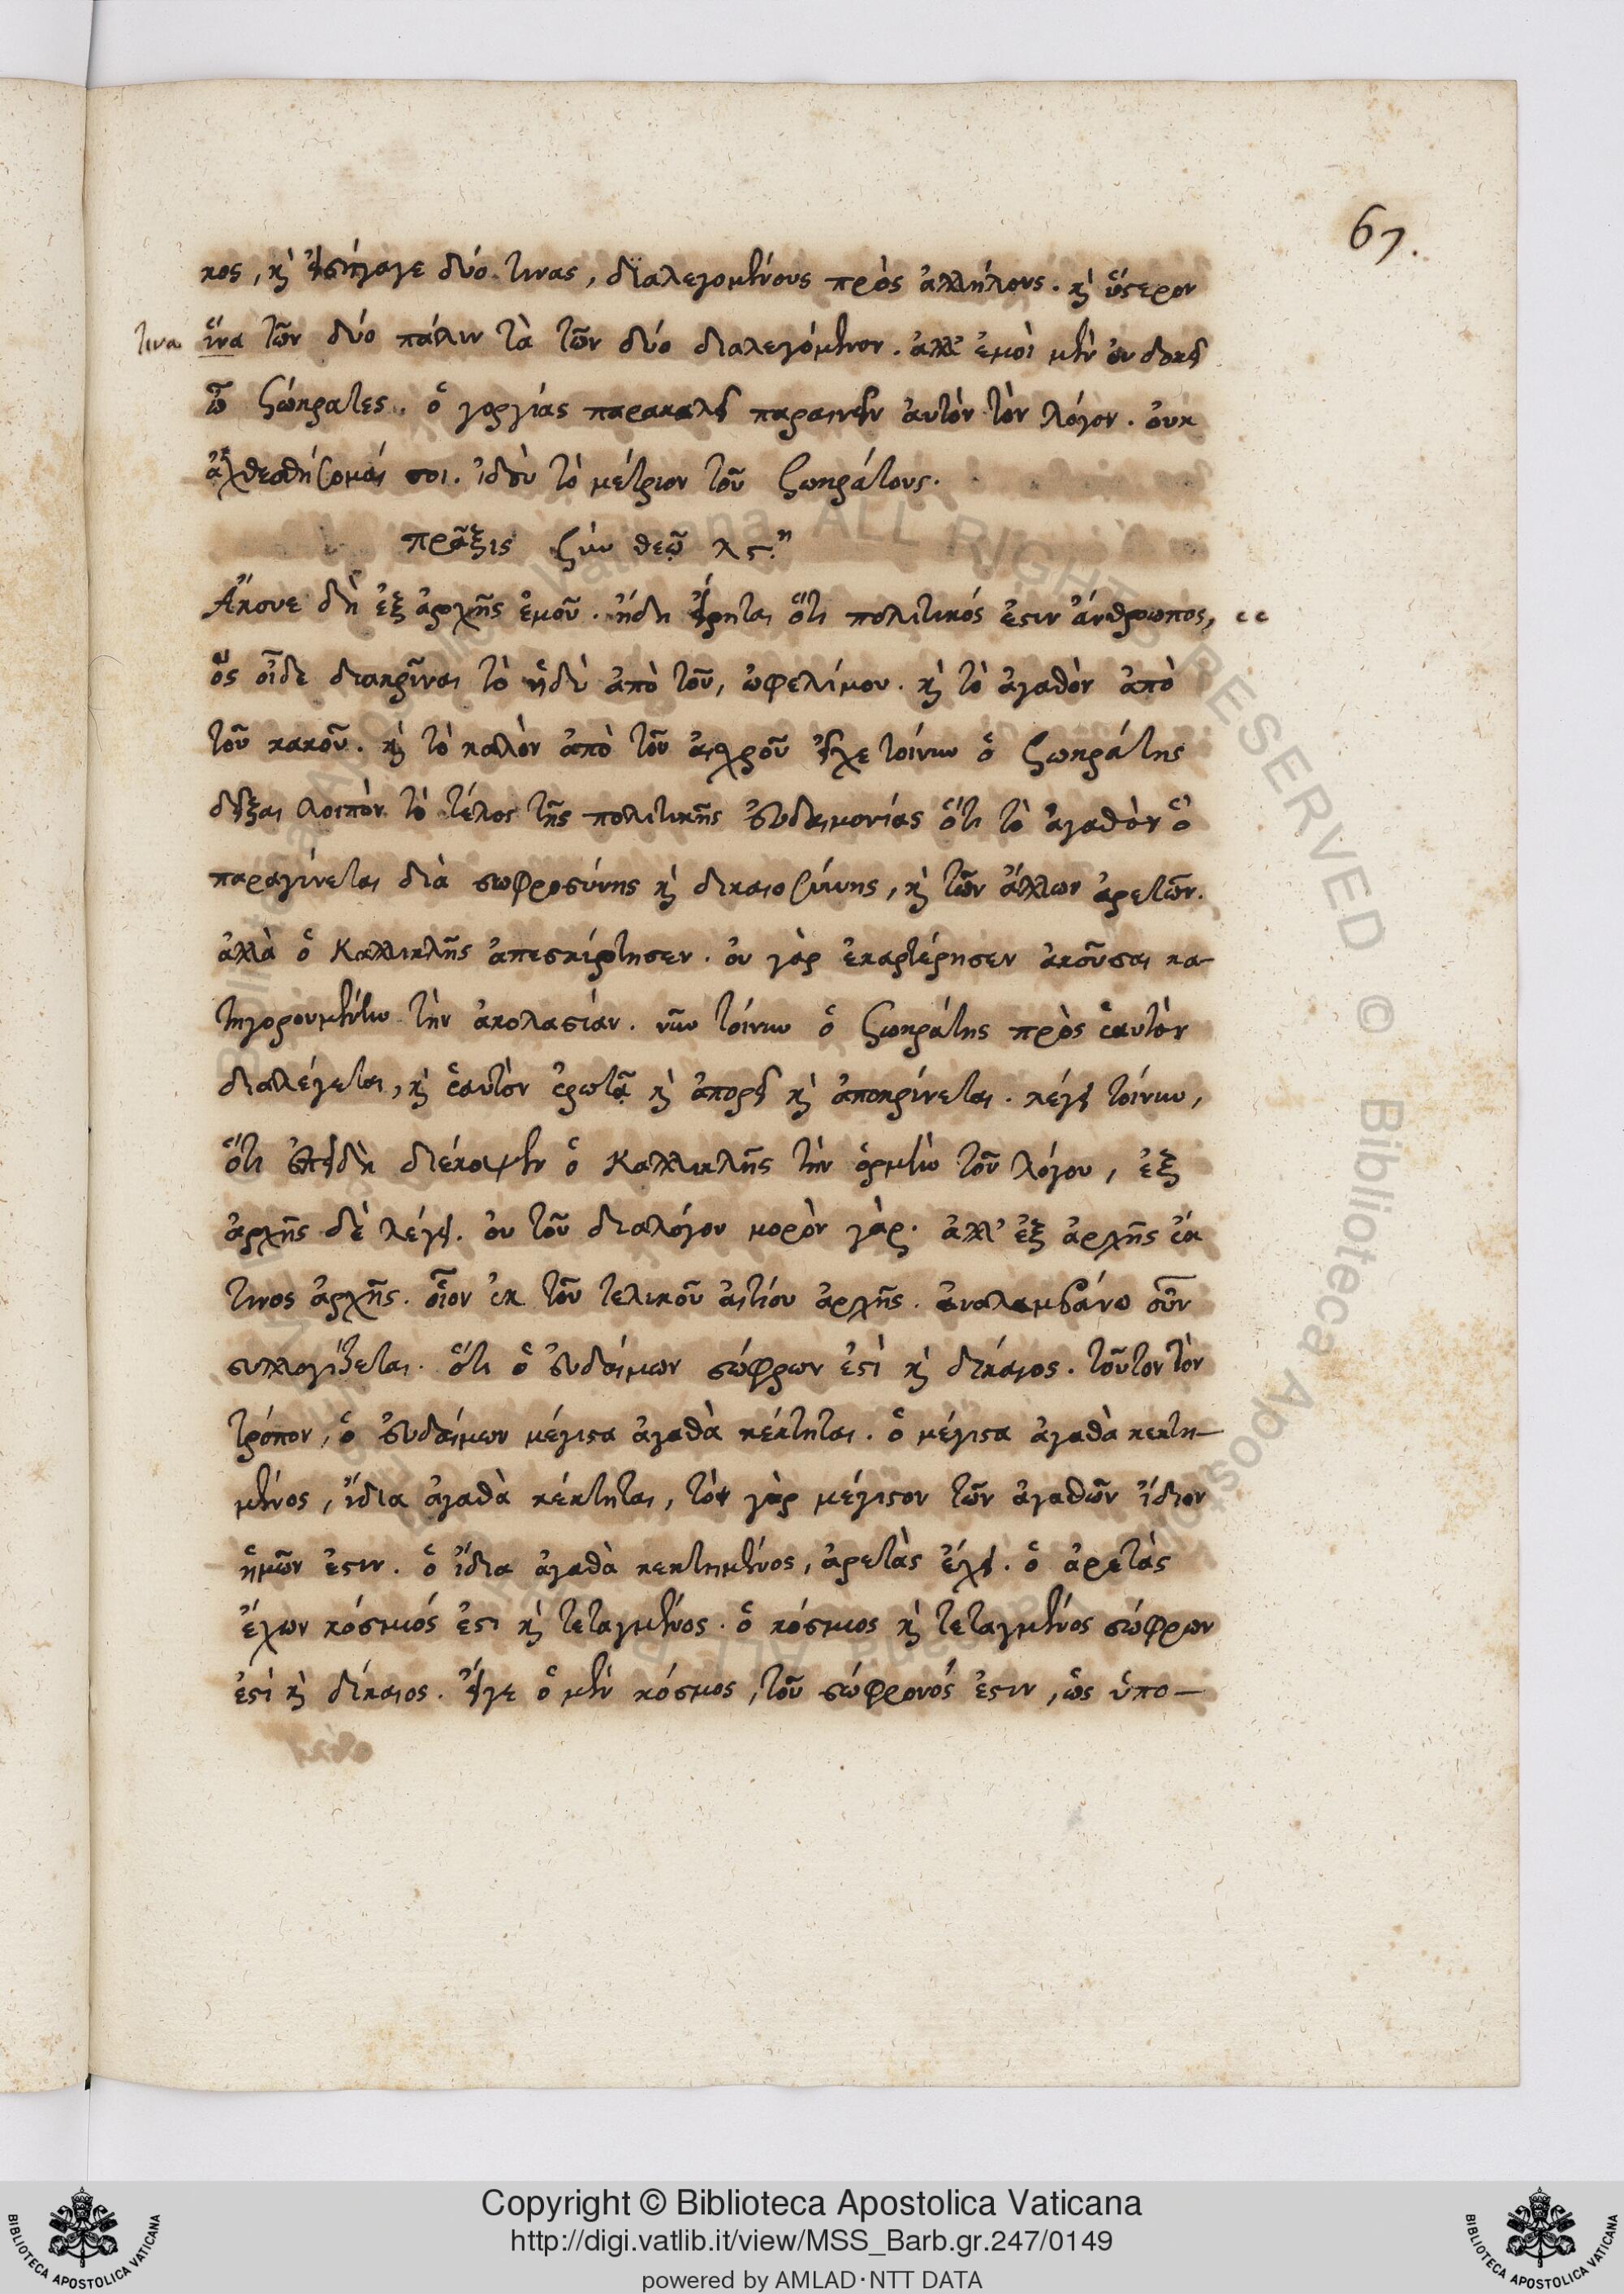 67.
κος, κὶ εἰσήγαγε δύο τινας, διαλεγομένους πρὸς ἀλλήλους. κὶ ὕστερον
τινα ἵνα τῶν δύο πάλιν τὰ τῶν δύο διαλεγόμενον. ἀλλ' ἐμοὶ μὲν οὐ δοκεῖ
ὦ Σώκρατες. ὁ γοργίας παρακαλεῖ παραινεῖν ἀυτὸν τὸν λόγον. ὀυκ
ἀχθεσθήσομαί σοι. ἰδοὺ τὸ μέτριον τοῦ Σωκράτους.
πρᾶξις σὺν θεῷ λς.η
Ἄκουε δὴ ἐξ ἀρχῆς ἐμοῦ. ἤδη εἴρηται ὅτι πολιτικός ἐστιν ἄνθρωπος,
ὃς οἶδε διακρῖναι τὸ ἡδὺ ἀπὸ τοῦ, ὠφελίμου. κὶ τὸ ἀγαθὸν ἀπὸ
τοῦ κακοῦ. κὶ τὸ καλὸν ἀπὸ τοῦ ἀισχροῦ εἶχε τοίνυν ὁ Σωκράτης
δεῖξαι λοιπὸν τὸ τέλος τῆς πολιτικῆς ἐυδαιμονίας ὅτι τὸ ἀγαθὸν ὃ
παραγίνεται διὰ σωφροσύνης κὶ δικαιοσύνης, κὶ τῶν ἄλλων ἀρετῶν.
ἀλλὰ ὁ Καλλικλῆς ἀπεσκίρτησεν. ὀυ γὰρ ἐκαρτέρησεν ἀκοῦσαι κα-
τηγορουμένην τὴν ἀκολασίαν. νῦν τοίνυν ὁ Σωκράτης πρὸς ἑαυτὸν
διαλέγεται, κὶ ἑαυτὸν ἐρωτᾷ κὶ ἀπορεῖ κὶ ἀποκρίνεται. λέγει τοίνυν,
ὅτι ἐπειδὴ διέκοψεν ὁ Καλλικλῆς τὴν ὁρμὴν τοῦ λόγου, ἐξ
ἀρχῆς δὲ λέγει. ὀυ τοῦ διαλόγου μορὸν γάρ. ἀλλ' ἐξ ἀρχῆς ἐά
τινος ἀρχῆς. οἷον ἐκ τοῦ τελικοῦ ἀιτίου ἀρχῆς. ἀναλαμβάνω οὖν
συλλογίζεται. ὅτι ὁ ἐυδαίμων σώφρων ἐστὶ κὶ δίκαιος. τοῦτον τὸν
τρόπον, ὁ ἐυδαίμων μέγιστα ἀγαθὰ κέκτηται. ὁ μέγιστα ἀγαθὰ κεκτη-
μένος, ἴδια ἀγαθὰ κέκτηται, τὸ γὰρ μέγιστον τῶν ἀγαθῶν ἴδιον
ἡμῶν ἐστιν. ὁ ἴδια ἀγαθὰ κεκτημένος, ἀρετὰς ἔχει. ὁ ἀρετὰς
ἔχων κόσμιός ἐστι κὶ τεταγμένος. ὁ κόσμιος κὶ τεταγμένος σώφρων
ἐστὶ κὶ δίκαιος. εἴγε ὁ μὲν κόσμος, τοῦ σώφρονός ἐστιν, ὡς ὑπο-
Copyright © Biblioteca Apostolica Vaticana
http://digi.vatlib.it/view/MSS_Barb.gr.247/0149
powered by AMLAD·NTT DATA
BIBLIOTECA APOSTOLICA VATICANA
BIBLIOTECA APOSTOLICA VATICANA